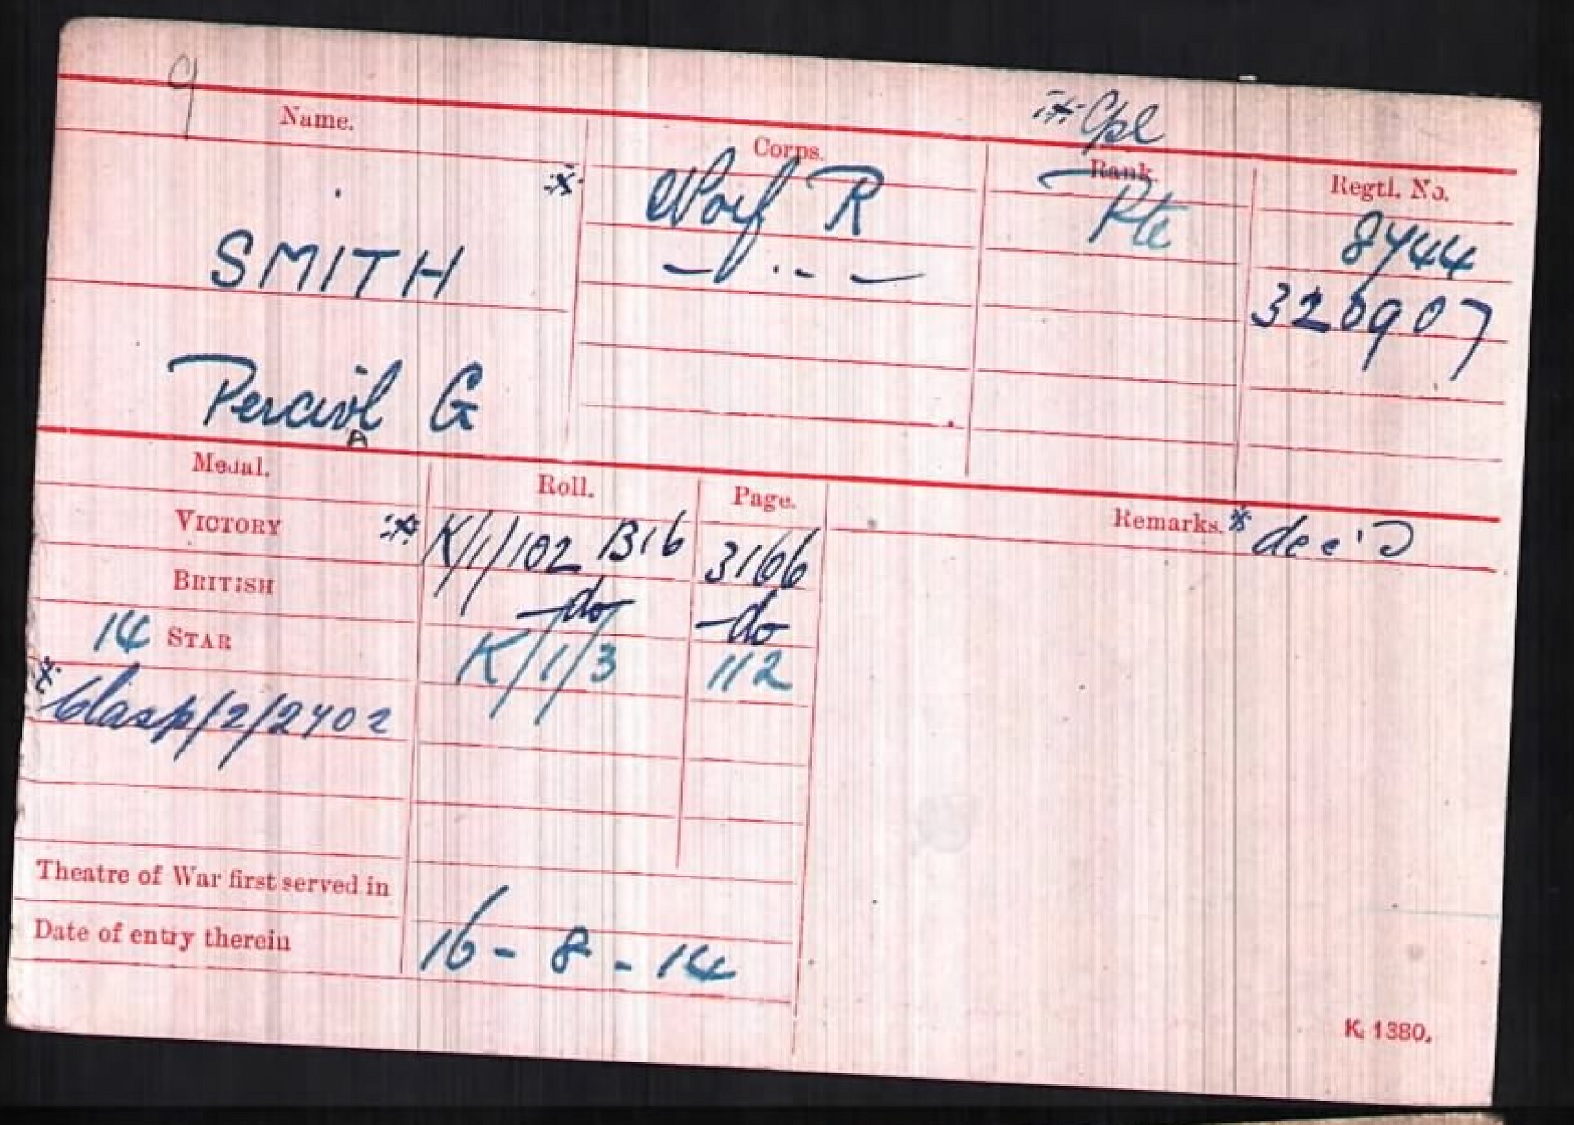 9
Name.
Corps.
※ Cpl
Rank
Regtl. No.
※ Norf R Pte 8744
— " — 320907
SMITH
Percivl G
A
Medal. Roll. Page. Remarks. ※ dec'd
VICTORY ※ K/1/102 B16 3166
BRITISH -do- -do-
14 STAR K/1/3 112
※ Clasp/2/2702
Theatre of War first served in
Date of entry therein 16-8-14
K. 1380.